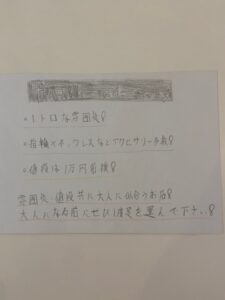 ◦レトロな雰囲気♪
◦指輪やネックレスなどアクセサリー多数♪
◦値段は1万円前後♪
雰囲気、値段共に大人に似合うお店♪
大人な名前にぜひ1度足を運んで下さい♪